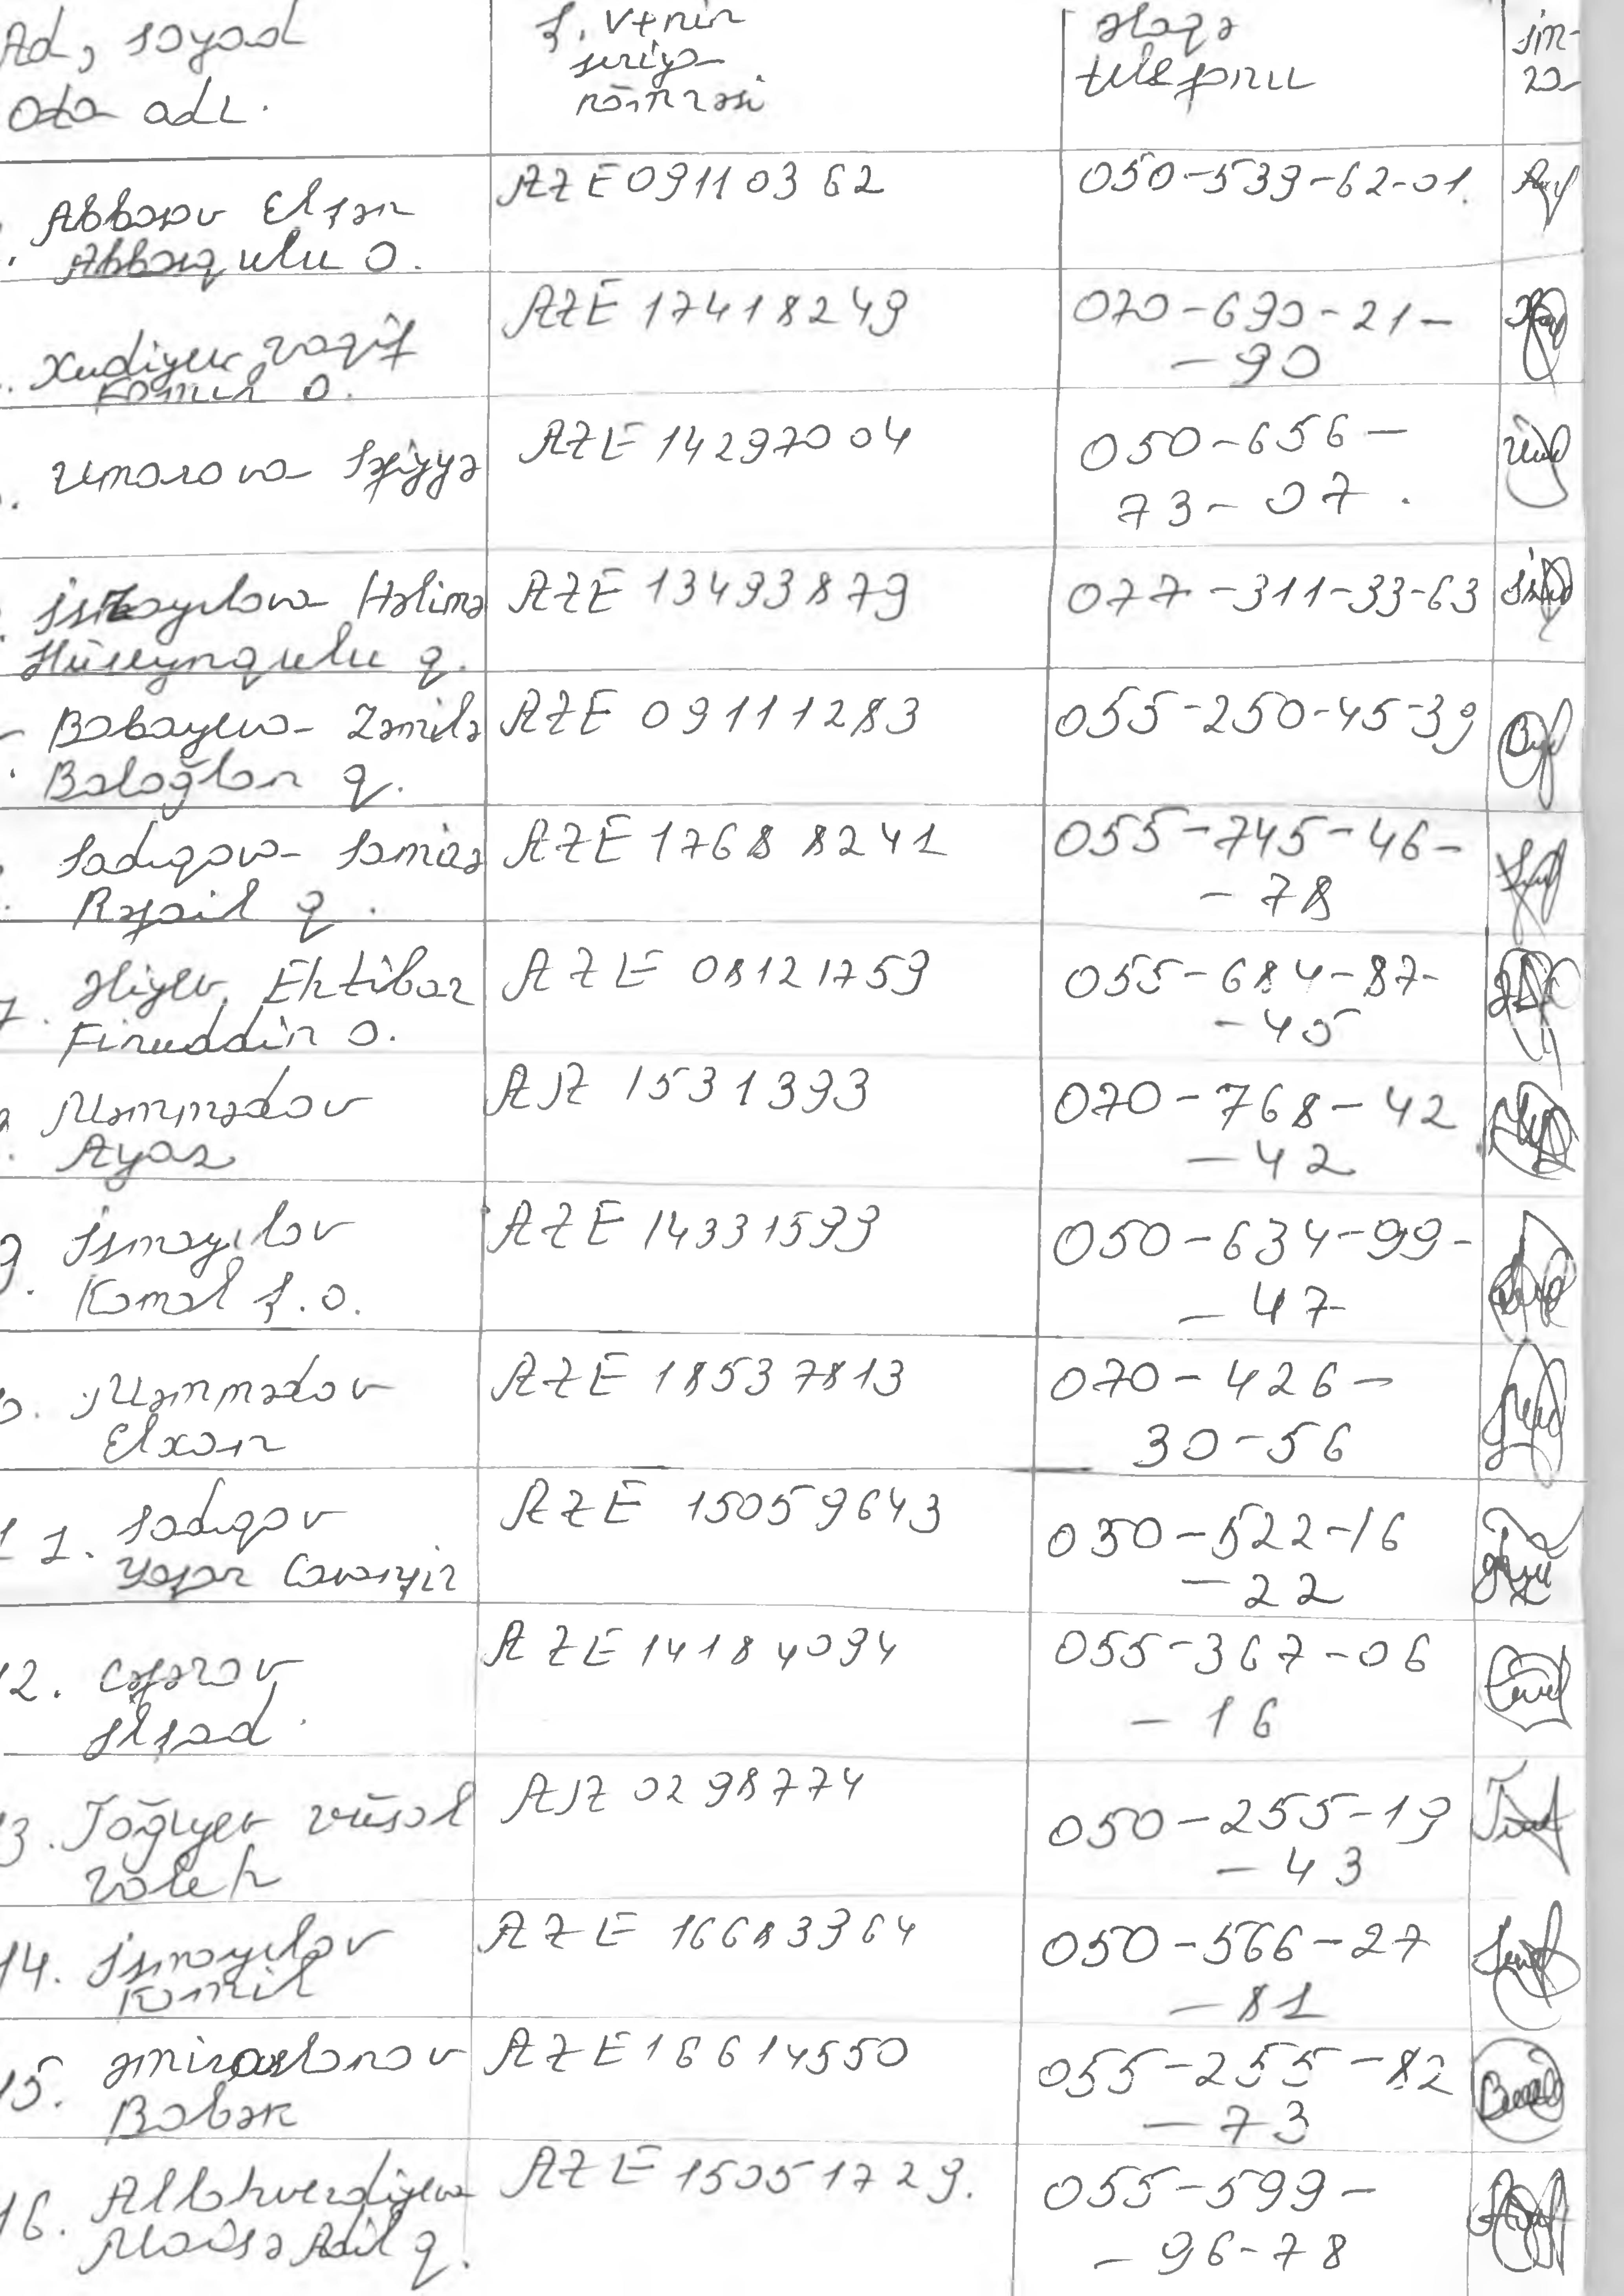 Ad, soyad
Ata adı.
Ş. V+nin
seriya
nömrəsi
Əlaqə
telefonu
im-
za
Abbasov Elşən
Abbasqulu o.
AZE 09110362
050-539-62-01.
Xudiyev Vaqif
Kamil o.
AZE 17418249
070-690-21-
-90
Umarova Səfiyyə
AZE 14297004
050-656-
73-07.
İsmayılova Həlimə
Hüseynqulu q.
AZE 13493879
077-311-33-63
Babayeva Zamilə
Baloğlan q.
AZE 09111283
055-250-45-39
Sadıqova Samirə
Rafail q.
AZE 17688241
055-745-46-
-78
7. Əliyev Ehtibar
Firuddin o.
AZE 08121759
055-684-87-
-45
Məmmədov
Ayaz
AA 1531393
070-768-42
-42
9. İsmayılov
Kamal Ş.o.
AZE 14331593
050-634-99-
-47
Məmmədov
Elxan
AZE 18537813
070-426-
30-56
11. Sadıqov
Yaşar Cavanşir
AZE 15059643
050-522-16
-22
12. Cəfərov
Elşad.
AZE 14184094
055-367-06
-16
13. Tağıyev Vüsal
Valeh
AA 0298774
050-255-19
-43
14. İsmayılov
Kamil
AZE 16683364
050-566-27
-81
15. Əmiraslanov
Babək
AZE 16614550
055-255-82
-73
16. Allahverdiyeva
Adil q.
AZE 15051729.
055-599-
-96-78